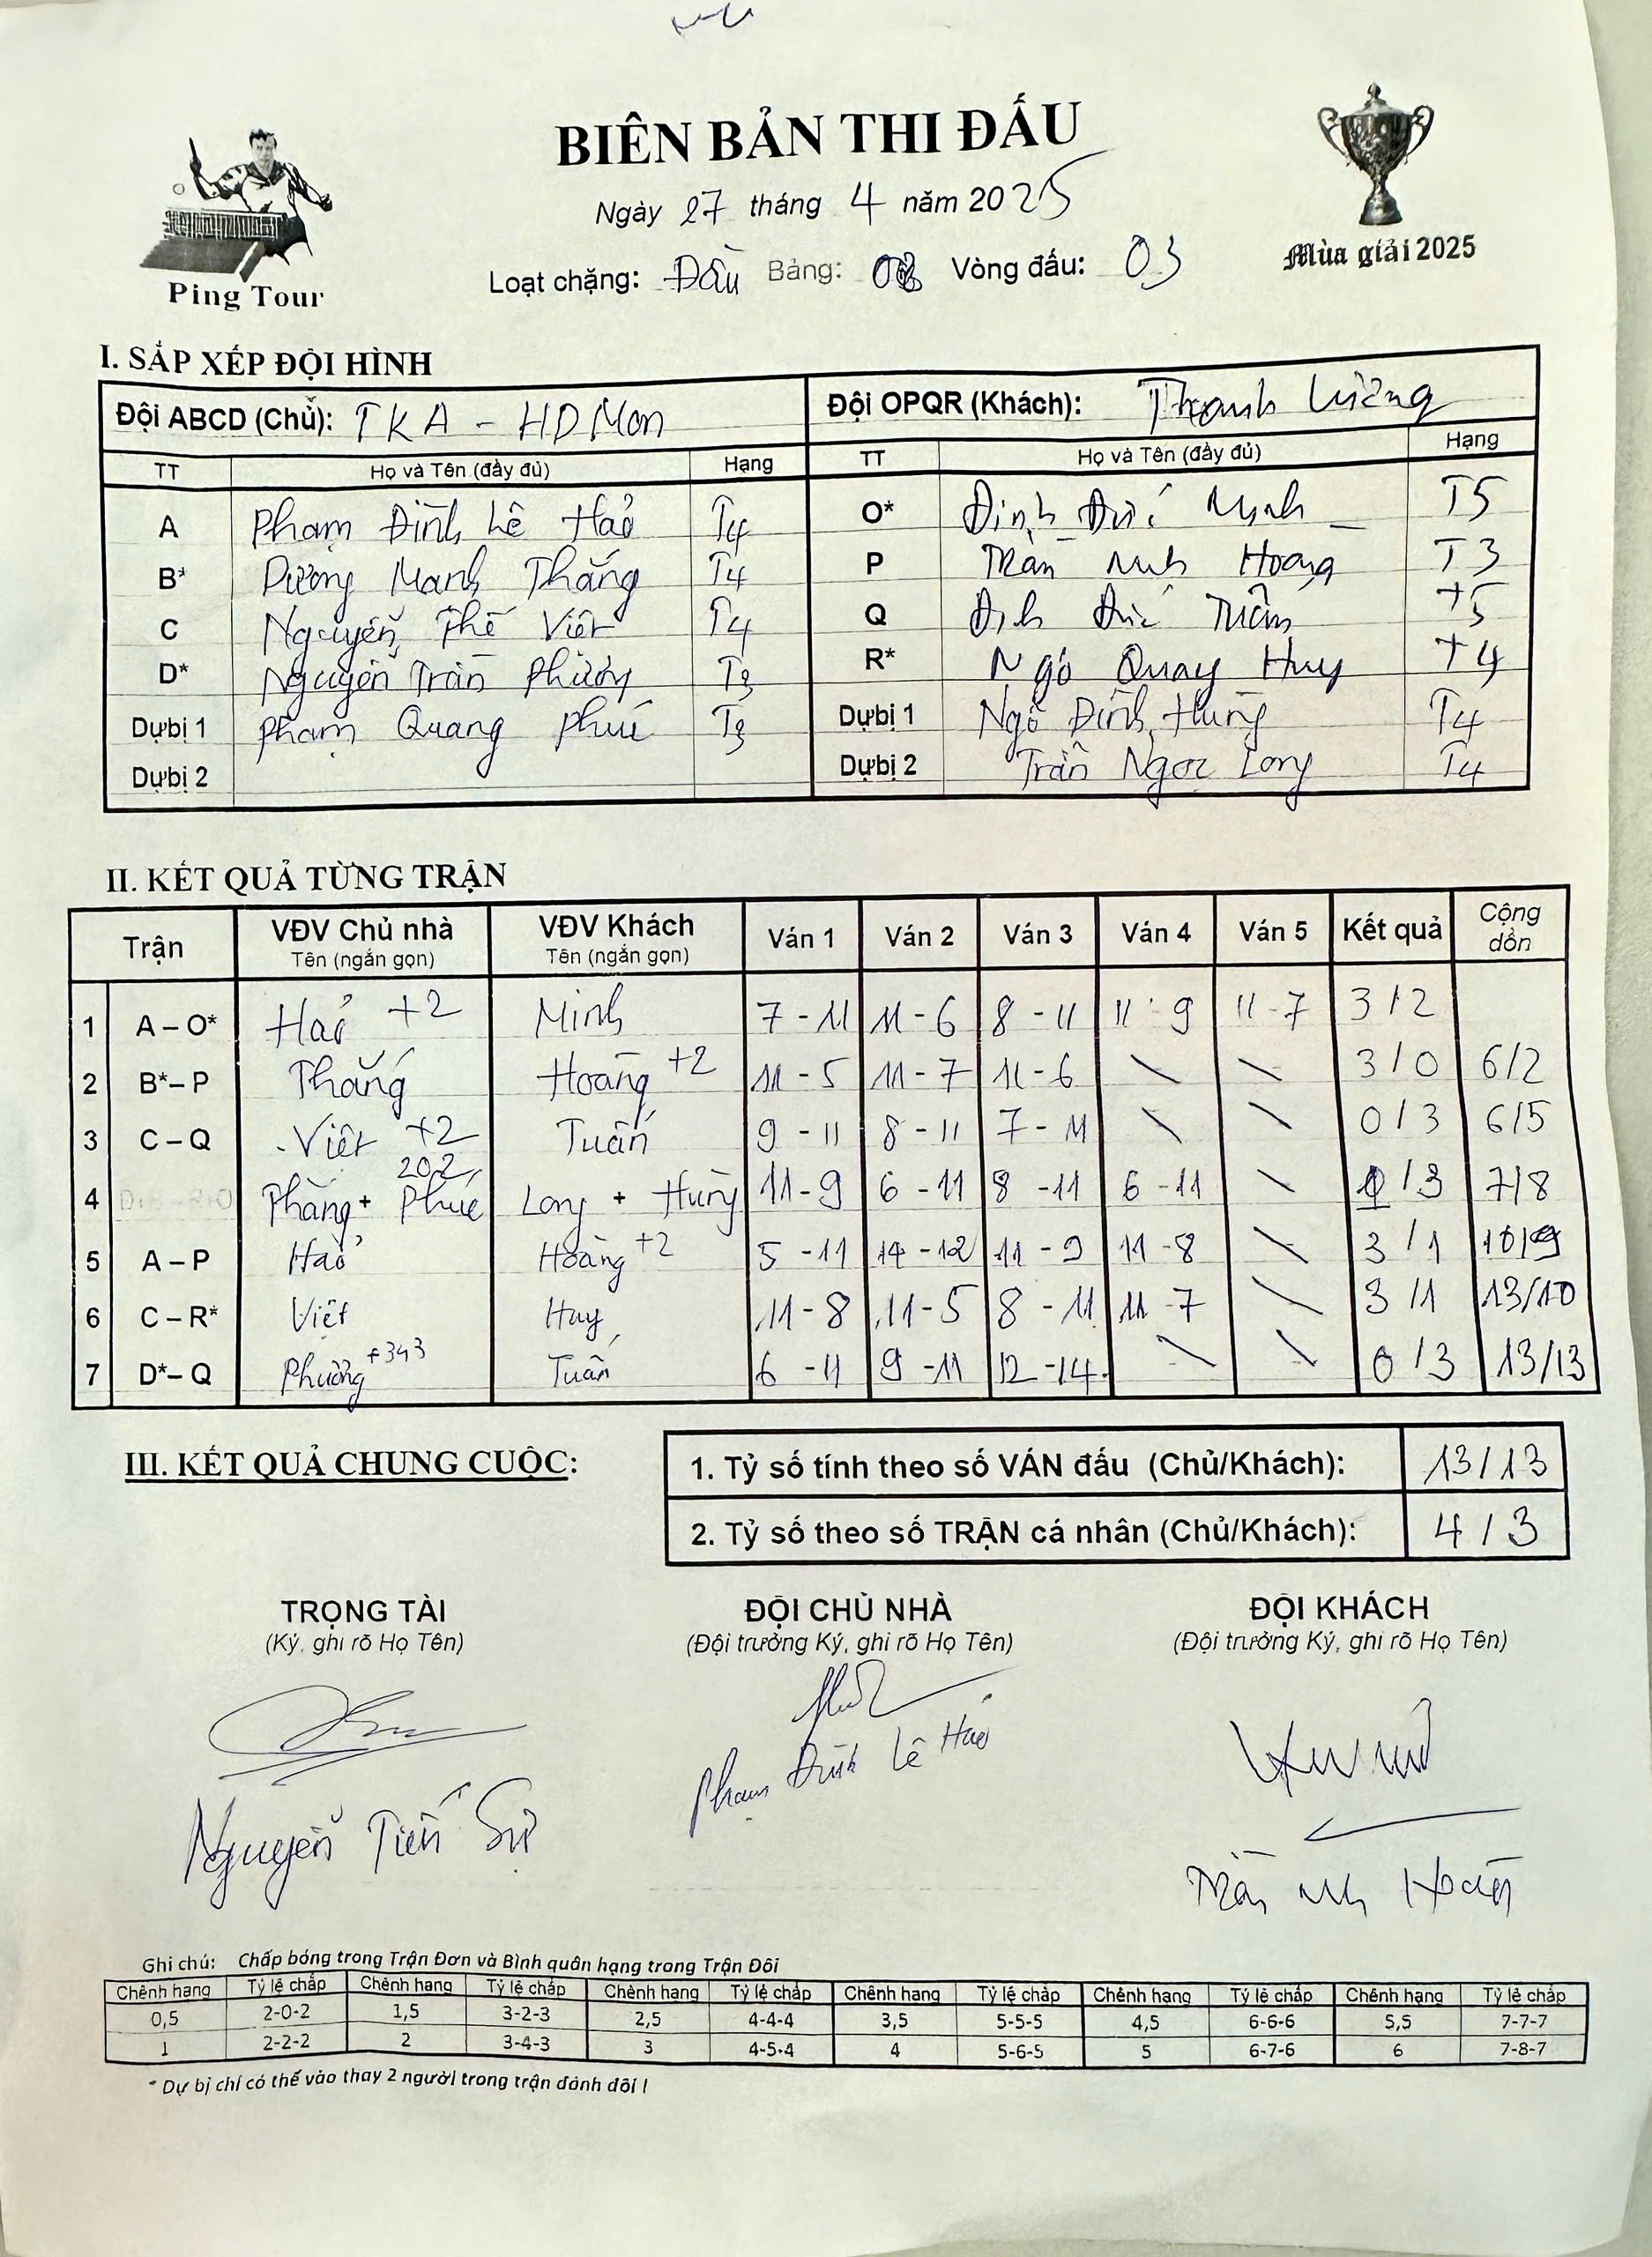 BIÊN BẢN THI ĐẤU
Ngày 27 tháng 4 năm 2025
Loạt chặng: Đầu Bảng: Vòng đấu: 03
Ping Tour
Mùa giải 2025
I. SẮP XẾP ĐỘI HÌNH
Đội ABCD (Chủ): TKA - HD Mon Đội OPQR (Khách): Thanh Lương
TT Họ và Tên (đầy đủ) Hạng TT Họ và Tên (đầy đủ) Hạng
A Phạm Đình Lê Hảo T4 O* Đinh Đức Minh T5
B* Dương Mạnh Thắng T4 P Trần Anh Hoàng T3
C Nguyễn Thế Việt T4 Q Đinh Đức Tuấn T5
D* Nguyễn Trần Phương T3 R* Ngô Quay Huy T4
Dự bị 1 Phạm Quang Phúc T3 Dự bị 1 Ngô Đình Hùng T4
Dự bị 2 Dự bị 2 Trần Ngọc Long T4
II. KẾT QUẢ TỪNG TRẬN
Trận VĐV Chủ nhà Tên (ngắn gọn) VĐV Khách Tên (ngắn gọn) Ván 1 Ván 2 Ván 3 Ván 4 Ván 5 Kết quả Cộng dồn
1 A – O* Hảo +2 Minh 7 - 11 11 - 6 8 - 11 11 - 9 11 - 7 3 / 2
2 B* – P Thắng Hoàng +2 11 - 5 11 - 7 11 - 6 \ \ 3 / 0 6/2
3 C – Q Việt +2 Tuấn 9 - 11 8 - 11 7 - 11 \ \ 0 / 3 6/5
4 + Phúc 202 Long + Hùng 11 - 9 6 - 11 8 - 11 6 - 11 \ 1 / 3 7/8
5 A – P Hảo Hoàng +2 5 - 11 14 - 12 11 - 9 11 - 8 \ 3 / 1 10/9
6 C – R* Việt Huy 11 - 8 11 - 5 8 - 11 11 - 7 \ 3 / 1 13/10
7 D* – Q Phương +343 Tuấn 6 - 11 9 - 11 12 - 14 \ \ 0 / 3 13/13
III. KẾT QUẢ CHUNG CUỘC:
1. Tỷ số tính theo số VÁN đấu (Chủ/Khách): 13 / 13
2. Tỷ số theo số TRẬN cá nhân (Chủ/Khách): 4 / 3
TRỌNG TÀI ĐỘI CHỦ NHÀ ĐỘI KHÁCH
(Ký, ghi rõ Họ Tên) (Đội trưởng Ký, ghi rõ Họ Tên) (Đội trưởng Ký, ghi rõ Họ Tên)
Nguyễn Tiến Sự Phạm Đình Lê Hảo Trần Anh Hoàng
Ghi chú: Chấp bóng trong Trận Đơn và Bình quân hạng trong Trận Đôi
Chênh hạng Tỷ lệ chấp Chênh hạng Tỷ lệ chấp Chênh hạng Tỷ lệ chấp Chênh hạng Tỷ lệ chấp Chênh hạng Tỷ lệ chấp Chênh hạng Tỷ lệ chấp
0,5 2-0-2 1,5 3-2-3 2,5 4-4-4 3,5 5-5-5 4,5 6-6-6 5,5 7-7-7
1 2-2-2 2 3-4-3 3 4-5-4 4 5-6-5 5 6-7-6 6 7-8-7
* Dự bị chỉ có thể vào thay 2 người trong trận đánh đôi !